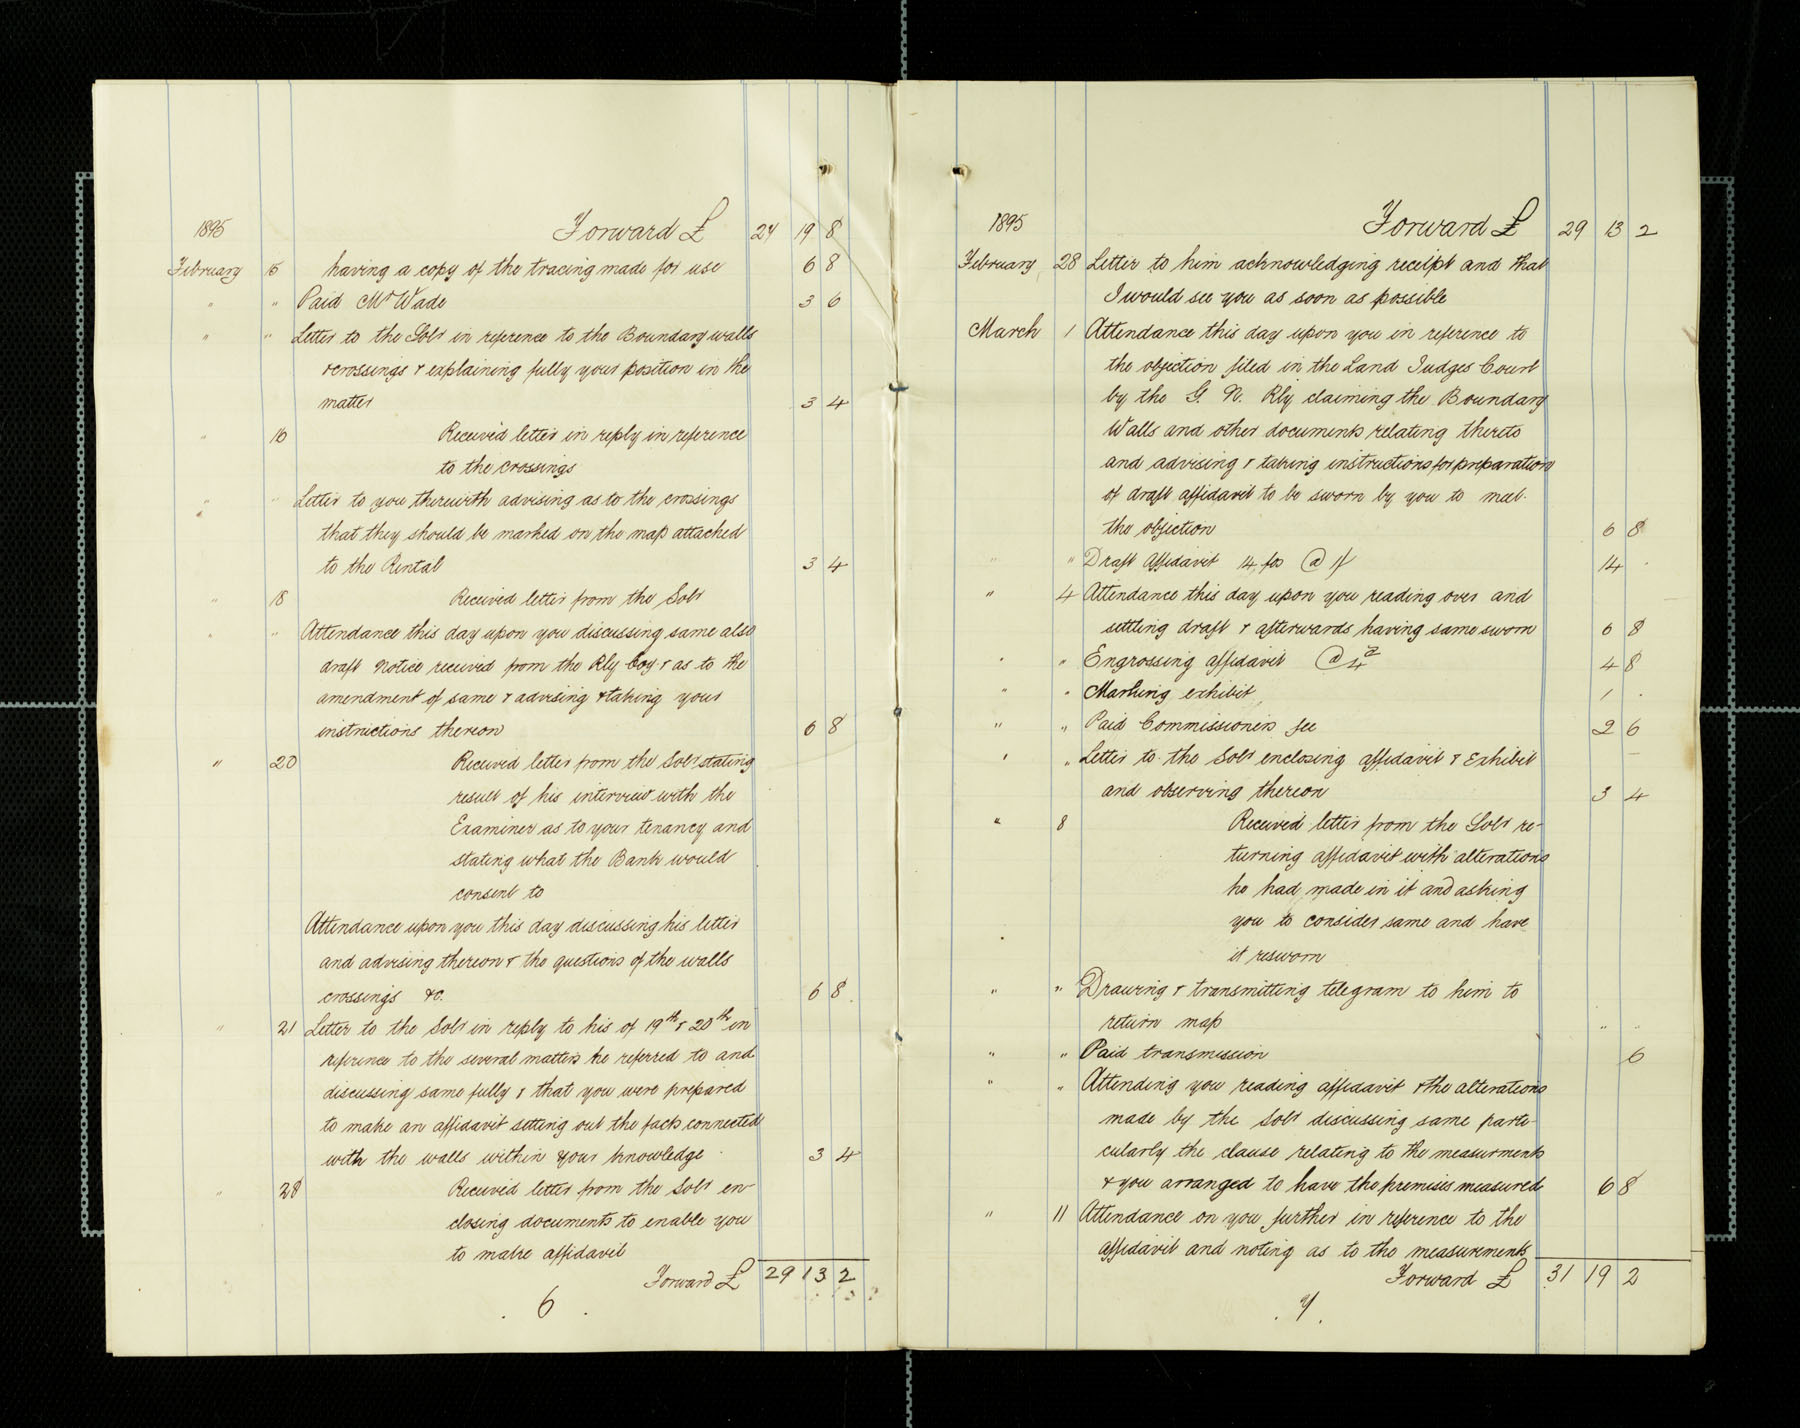 1895 Forward £ 24 19 8
February 15 having a copy of the tracing made for use 6 8
" " Paid Mr Wade 3 6
" " Letter to the Solr in reference to the Boundary walls
& crossings & explaining fully your position in the
matter 3 4
" 16 Received letter in reply in reference
to the crossings
" " Letter to you therewith advising as to the crossings
that they should be marked on the map attached
to the Rental 3 4
" 18 Received letter from the Solr
" " Attendance this day upon you discussing same also
draft Notice received from the Rly Coy & as to the
amendment of same & advising & taking your
instructions thereon 6 8
" 20 Received letter from the Solr stating
result of his interview with the
Examiner as to your tenancy and
stating what the Bank would
consent to
Attendance upon you this day discussing his letter
and advising thereon & the questions of the walls
crossings &c. 6 8
" 21 Letter to the Solr in reply to his of 19th & 20th in
reference to the several matters he referred to and
discussing same fully & that you were prepared
to make an affidavit setting out the facts connected
with the walls within your knowledge 3 4
" 28 Received letter from the Solr en-
closing documents to enable you
to make affidavit
Forward £ 29 13 2
6
1895 Forward £ 29 13 2
February 28 Letter to him acknowledging receipt and that
I would see you as soon as possible
March 1 Attendance this day upon you in reference to
the objection filed in the Land Judges Court
by the G. N. Rly claiming the Boundary
Walls and other documents relating thereto
and advising & taking instructions for preparation
of draft affidavit to be sworn by you to meet
the objection 6 8
" " Draft Affidavit 14 fos @ 1/ 14 .
" 4 Attendance this day upon you reading over and
settling draft & afterwards having same sworn 6 8
" " Engrossing affidavit @ 4d 4 8
" " Marking exhibit 1 .
" " Paid Commissioners fee 2 6
" " Letter to the Solr enclosing affidavit & Exhibit
and observing thereon 3 4
" 8 Received letter from the Solr re-
turning affidavit with alterations
he had made in it and asking
you to consider same and have
it resworn
" " Drawing & transmitting telegram to him to
return map " "
" " Paid transmission 6
" " Attending you reading affidavit & the alterations
made by the Solr discussing same parti-
cularly the clause relating to the measurments
& you arranged to have the premises measured 6 8
" 11 Attendance on you further in reference to the
affidavit and noting as to the measurements
Forward £ 31 19 2
7